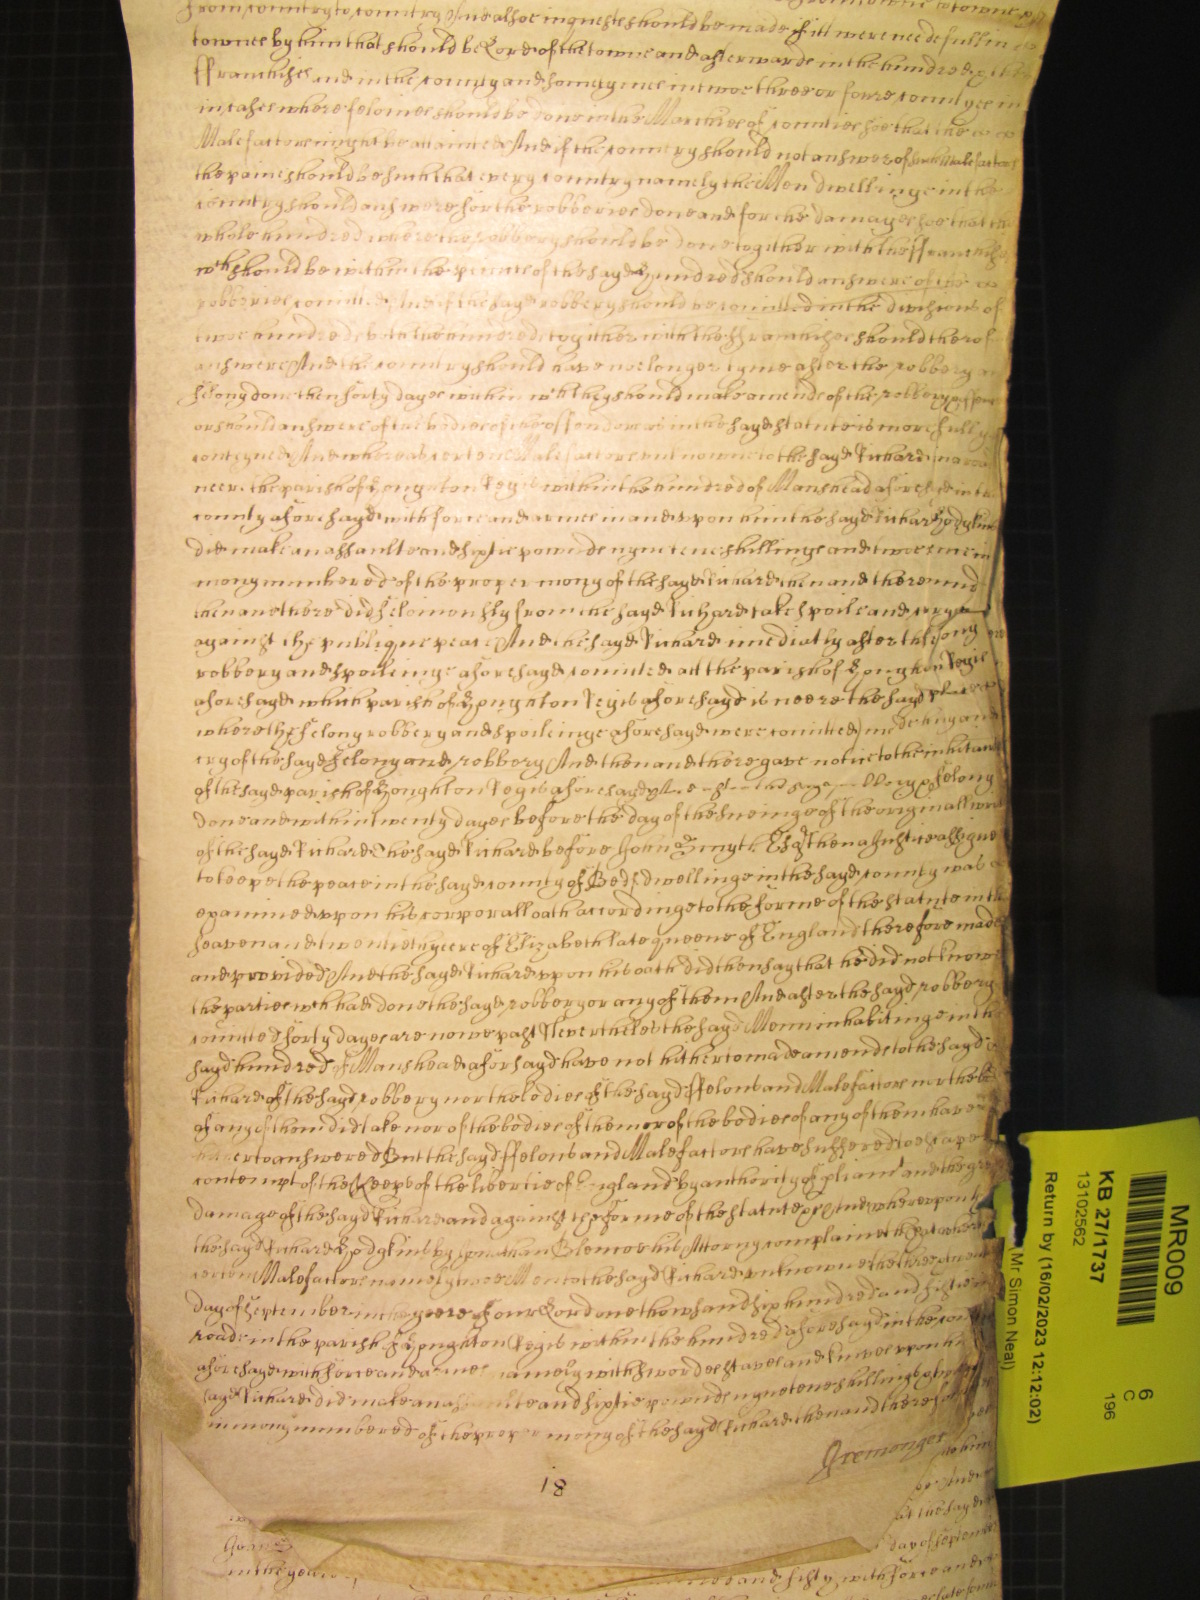 from country to country And alsoe inquests should be made if itt were needefull in
townes by him that should be Lord of the towne and afterwards in the hundred
ffranchises and in the county and sometymes in twoe three or foure countyes in
in cases where felonies should be done in the Marches of counties soe that the
Malefactors might be attainted And if the country should not answer of such Malefactors
the paine should be such that every country namely the Men dwellinge in the
country should answere for the robberies done and for the damages soe that the
whole hundred where the robbery should be done together with the ffranchises
wch should be within the precincte of the sayd Hundred should answere of the
robberies comitted And if the sayd robbery should be comitted in the divisions of
twoe hundreds both the hundreds together with the ffranchises should therof
answere And the country should have noe longer tyme after the robbery
felony done then forty dayes within wch they should make amends of the robbery
or should answere of the bodies of the offendors as in the sayd statute is more fully
conteyned And whereas certene Malefactors unknowne to the sayd Richard in a road
neere the parish of Houghton Regis within the hundred of Manshead aforesayd in the
county aforesayd with force and armes in and uppon him the sayd Richard Hodgkins
did make an assaulte and sixtie pounds nyneteene shillings and twoe
mony numbered of the proper mony of the sayd Richard then and there
then and there did feloniously from the sayd Richard take spoile and carry
against the publique peace And the sayd Richard imediatly after the felony
robbery and spoilinge aforesayd comitted att the parish of Houghton Regis
aforesayd which parish of Houghton Regis aforesayd is neere the sayd place
where the felony robbery and spoilinge aforesayd were comitted made hue and
cry of the sayd felony and robbery And then and there gave notice to the inhabitants
of the sayd parish of Houghton Regis aforesayd felony
done and within twenty dayes before the day of the sueinge of the originall writt
of the sayd Richard the sayd Richard before John Smyth Esqr then a Justice assigned
to keepe the peace in the sayd county of Bedf dwellinge in the sayd county was
examined uppon his corporall oath accordinge to the forme of the statute in the
seaven and twentieth yeere of Elizabeth late queene of England therefore made
and provided And the sayd Richard uppon his oath did then say that he did not knowe
the parties wch had done the sayd robbery or any of them And after the sayd robbery
comitted forty dayes are nowe past Neverthelesse the sayd Menn inhabitinge in the
sayd hundred of Manshead aforsayd have not hitherto made amends to the sayd
Richard of the sayd robbery nor the bodies of the sayd ffelons and Malefactors nor the
of any of them did take nor of the bodies of them or of the bodies of any of them have
hitherto answered But the sayd ffelons and Malefactors have suffered to escape
contempt of the Keeps of the libertie of England by authority of pliamt and the
damage of the sayd Richard and against the forme of the statute And wherenpon
the sayd Richard Hodgkins by Jonathan his Attorny complaineth that
certene Malefactors namely twoe Men to the sayd Richard unknowne the
day of September in the yeere of our Lord one thowsand six hundred and fiftie
road in the parish of Houghton Regis within the hundred aforesayd in the county
aforesayd with force and armes namely with swordes staves and knives uppon
sayd Richard did make an assaulte and sixtie pounds nyneteene shillings
in mony numbered of the proper mony of the sayd Richard then and there
Iremonger
18
day of September
in the yeere and fifty with force and
MR009
KB 27/1737
13102562
Return by (16/02/2023 12:12:02)
(Mr Simon Neal)
6
C
196